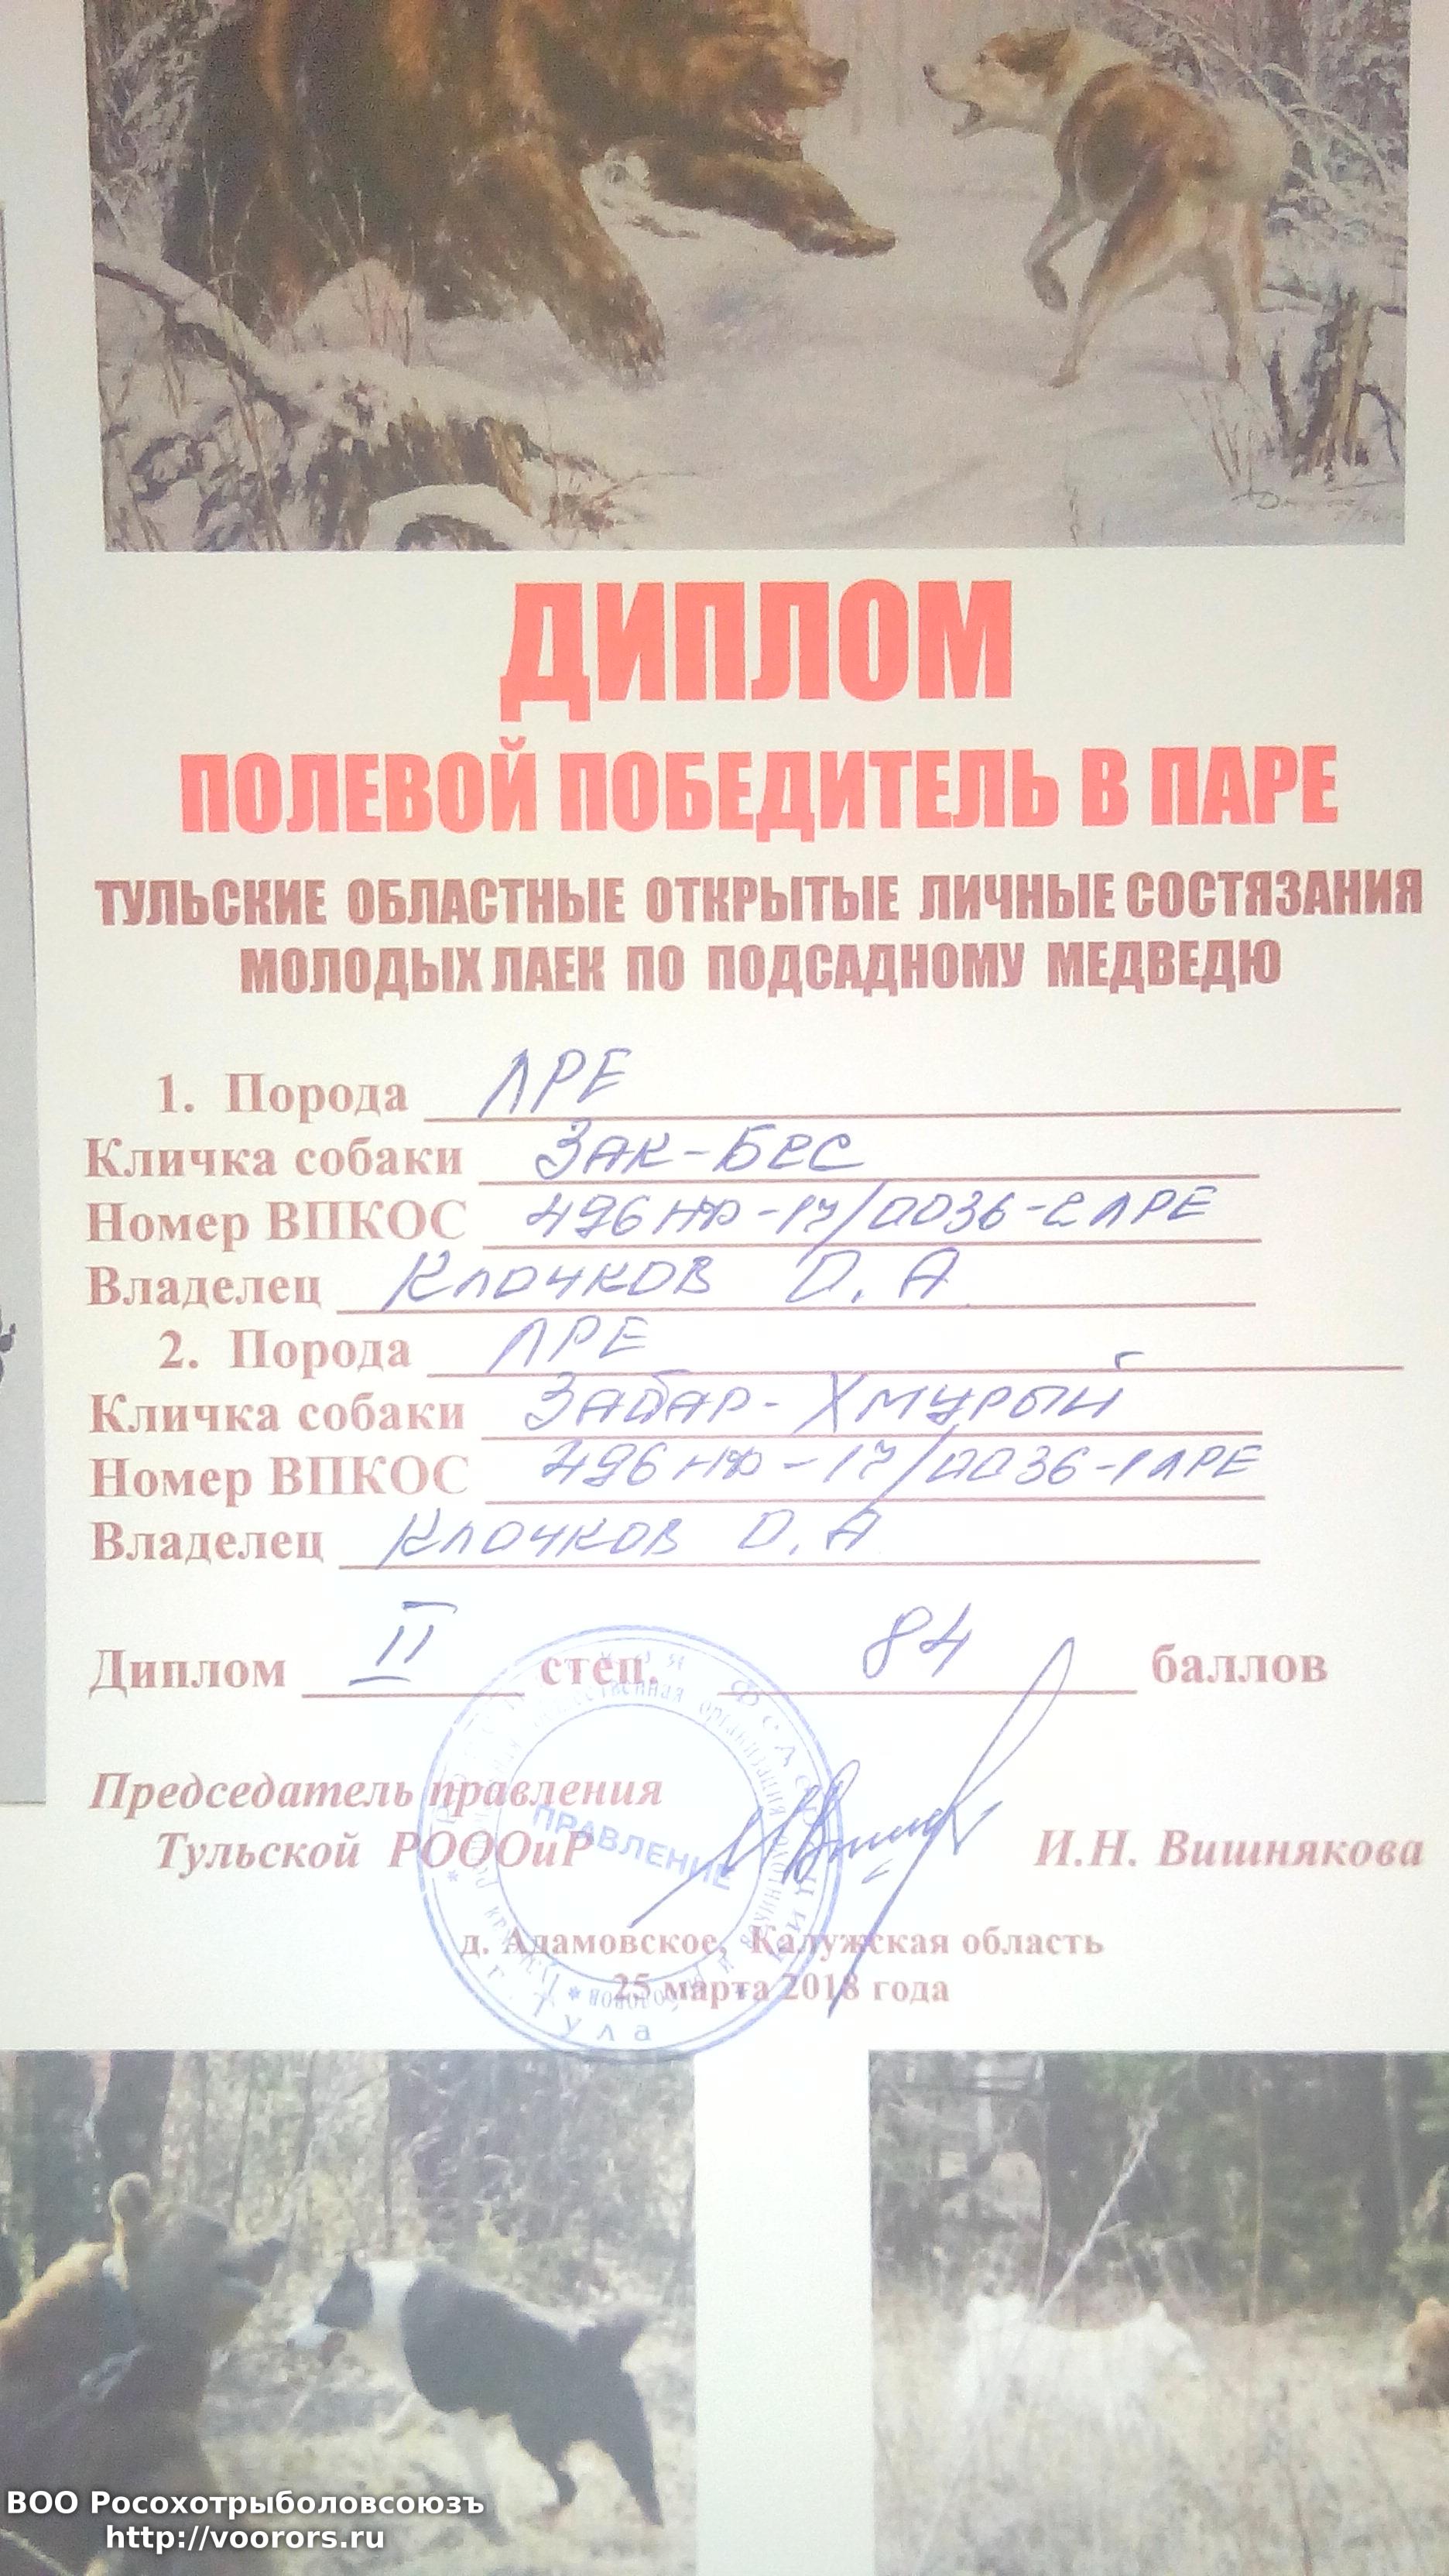 ДИПЛОМ
ПОЛЕВОЙ ПОБЕДИТЕЛЬ В ПАРЕ
ТУЛЬСКИЕ ОБЛАСТНЫЕ ОТКРЫТЫЕ ЛИЧНЫЕ СОСТЯЗАНИЯ
МОЛОДЫХ ЛАЕК ПО ПОДСАДНОМУ МЕДВЕДЮ
1. Порода ЛРЕ
Кличка собаки Зак-Бес
Номер ВПКОС 496нф-17/0036-2ЛРЕ
Владелец Клочков О.А
2. Порода ЛРЕ
Кличка собаки Забар-Хмурый
Номер ВПКОС 496нф-17/0036-1ЛРЕ
Владелец Клочков О.А
Диплом II степ. 84 баллов
Председатель правления
Тульской РОООиР И.Н. Вишнякова
ПРАВЛЕНИЕ
д. Адамовское, Калужская область
25 марта 2018 года
г. Тула
ВОО Росохотрыболовсоюзъ
http://voorors.ru